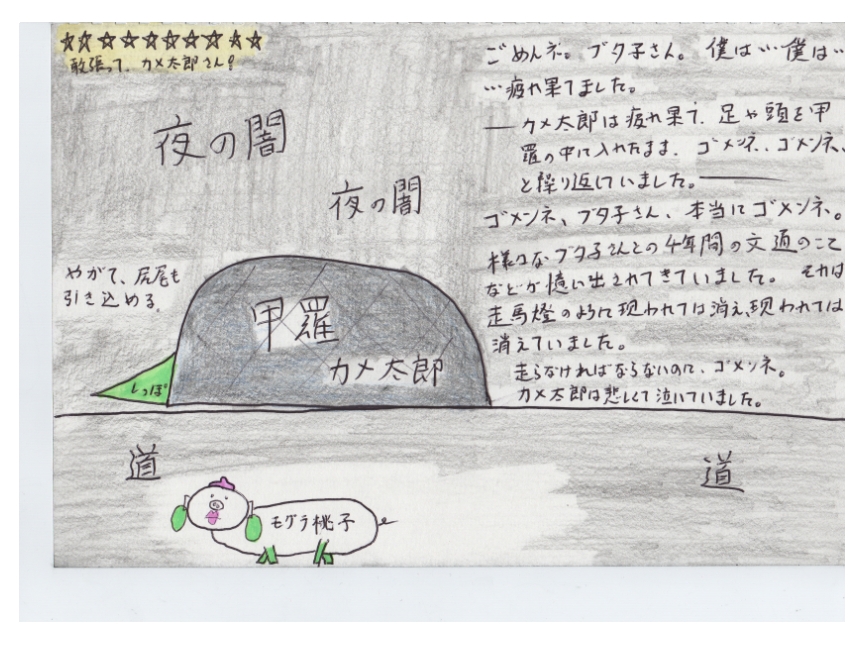 ☆☆☆☆☆☆☆☆☆☆
敢張って、カメ太郎さん!
夜の闇
夜の闇
やがて、尻尾も
引き込める。
しっぽ
甲羅
カメ太郎
ごめんネ。ブタ子さん。僕は…僕は…
…疲れ果てました。
―カメ太郎は疲れ果て、足や頭を甲
羅の中に入れたまま、ゴメンネ、ゴメンネ、
と繰り返していました。――
ゴメンネ、ブタ子さん、本当にゴメンネ。
様々なブタ子さんとの4年間の文通のこと
などが憶い出されてきていました。それは
走馬燈のように現われては消え、現われては
消えていました。
走らなければならないのに、ゴメンネ。
カメ太郎は悲しくて泣いていました。
道
道
モグラ桃子